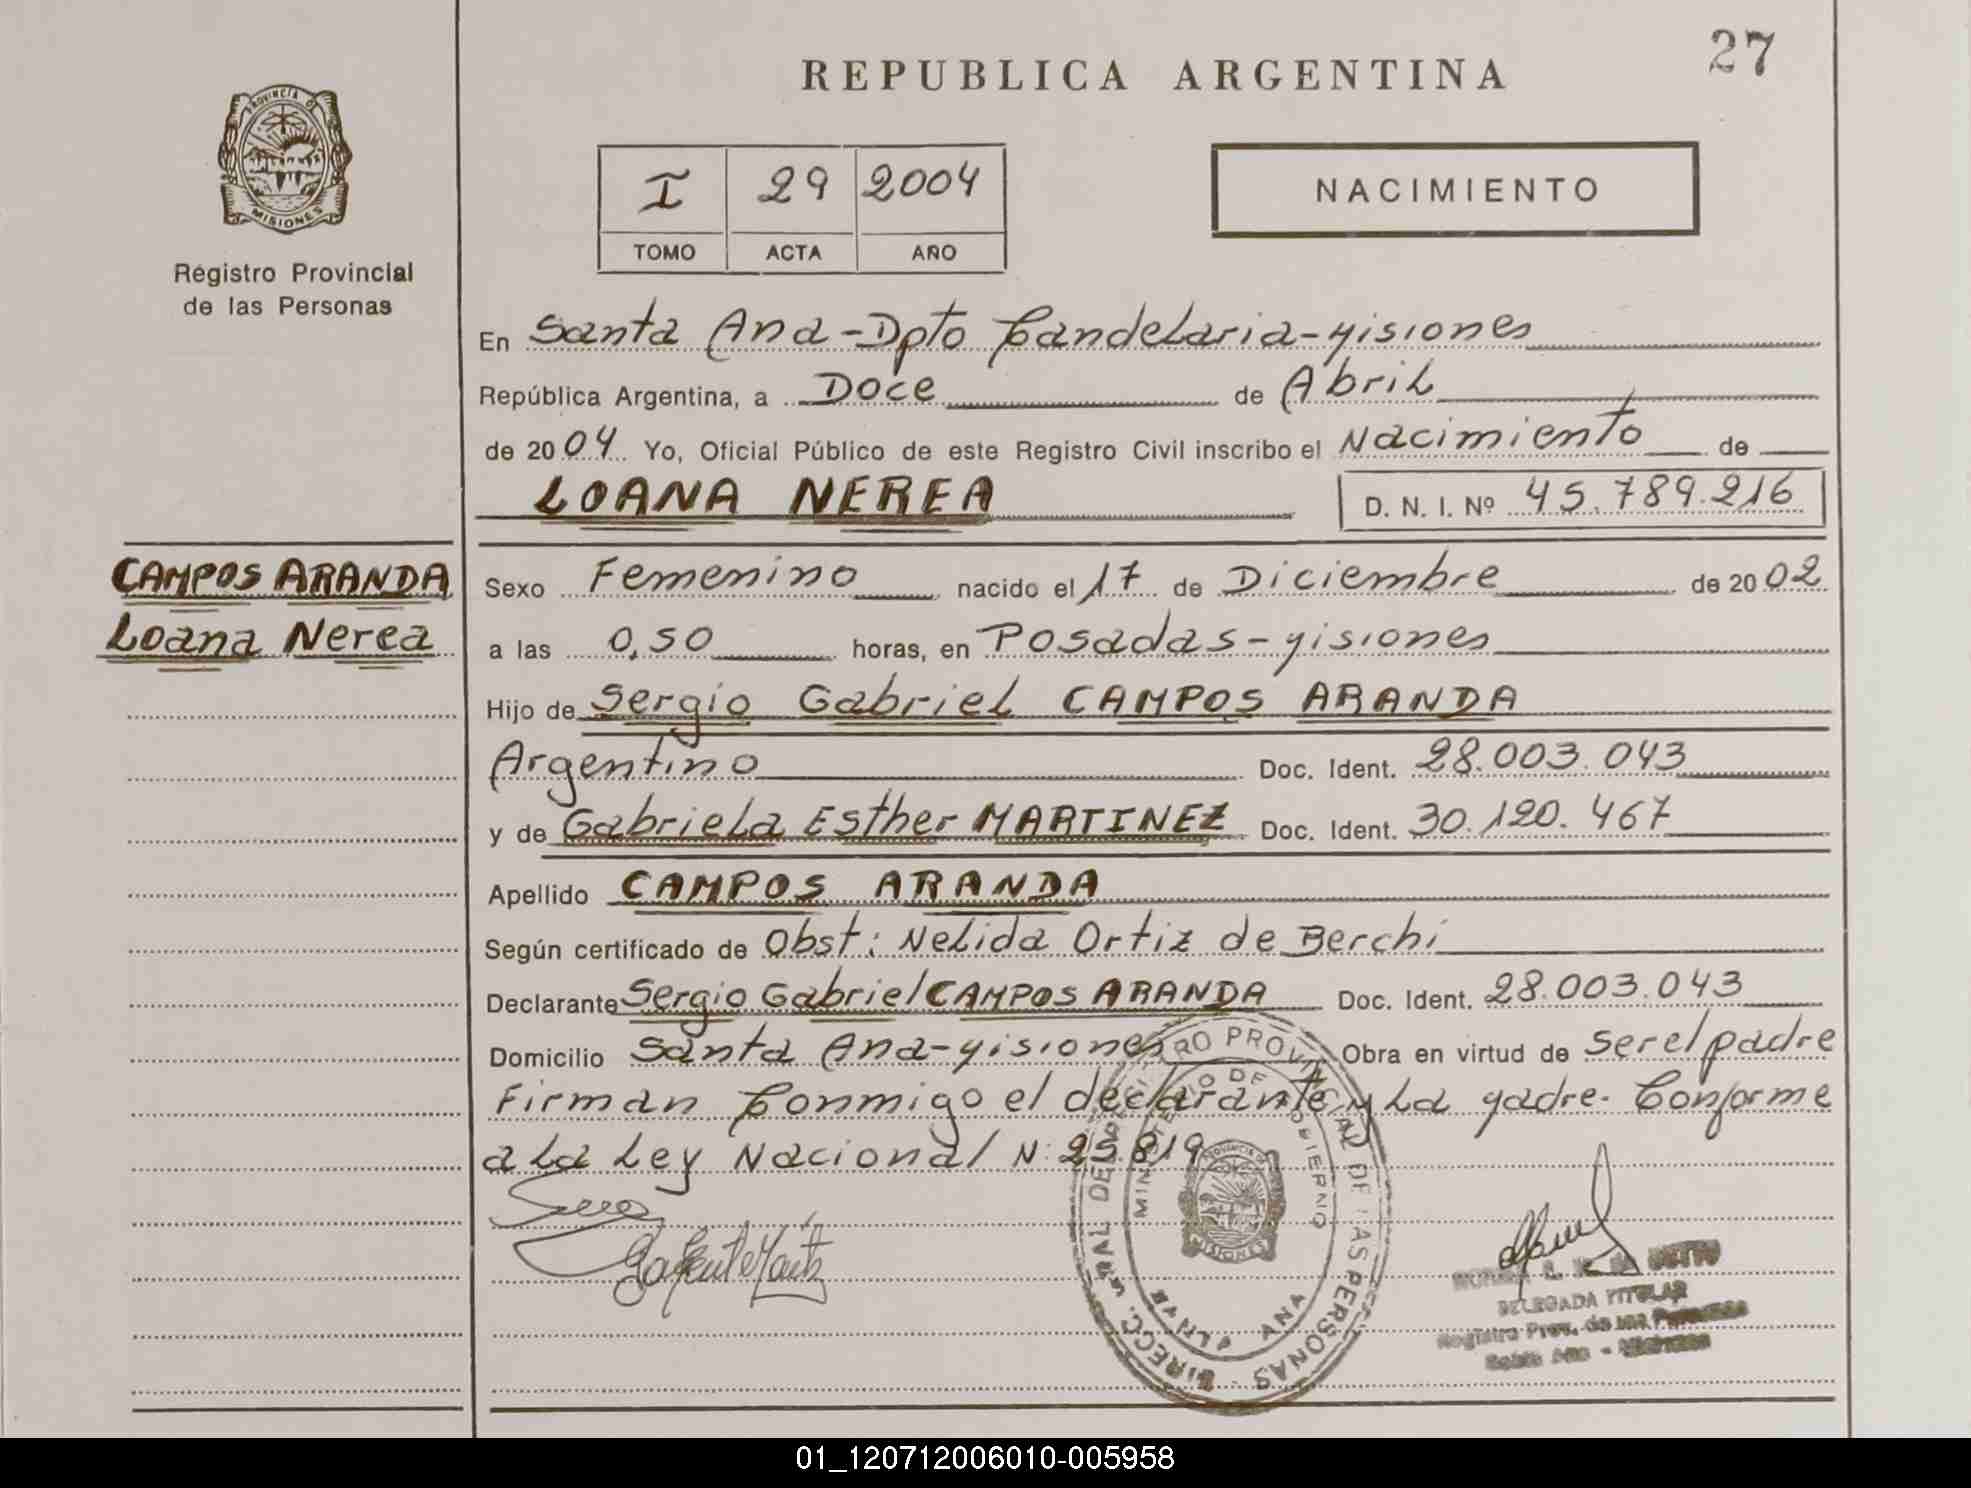 27
REPUBLICA ARGENTINA
PROVINCIA D
MISIONES
Registro Provincial
de las Personas
I 29 2004
TOMO ACTA AÑO
NACIMIENTO
En Santa Ana-Dpto Candelaria-Misiones
República Argentina, a Doce de Abril
de 2004 Yo, Oficial Público de este Registro Civil inscribo el Nacimiento de
LOANA NEREA D. N. I. Nº 45.789.216
CAMPOS ARANDA
Loana Nerea
Sexo Femenino nacido el 17 de Diciembre de 2002
a las 0,50 horas, en Posadas-Misiones
Hijo de Sergio Gabriel CAMPOS ARANDA
Argentino Doc. Ident. 28.003.043
y de Gabriela Esther MARTINEZ Doc. Ident. 30.120.467
Apellido CAMPOS ARANDA
Según certificado de Obst: Nelida Ortiz de Berchi
Declarante Sergio Gabriel CAMPOS ARANDA Doc. Ident. 28.003.043
Domicilio Santa Ana-Misiones Obra en virtud de ser el padre
Firman Conmigo el declarante y La Madre. Conforme
a La Ley Nacional N: 25.819
RO PROVINCIAL DE LAS PERSONAS
MINISTERIO DE GOBIERNO
ANA
MISIONES
DELEGADA TITULAR
Registro Prov. de las Personas
Santa Ana - Misiones
01_120712006010-005958